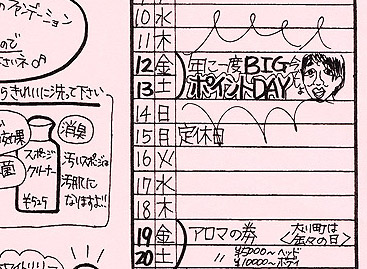 のファンデーション
ので
さいネ♂
うきれいに洗って下さい
消臭
効果
菌
スポンジ
クリーナー
¥525
汚いスポンジ
汚服に
なりますよ!!
ホワイトリリー
10 水
11 木
12 金
13 土
年に一度BIG
ポイントDAY
14 日
15 月 定休日
16 火
17 水
18 木
19 金 アロマの券
大川町は
<金々の日>
20 土 〃 ¥5000〜ヘッド
¥10000〜ボディ